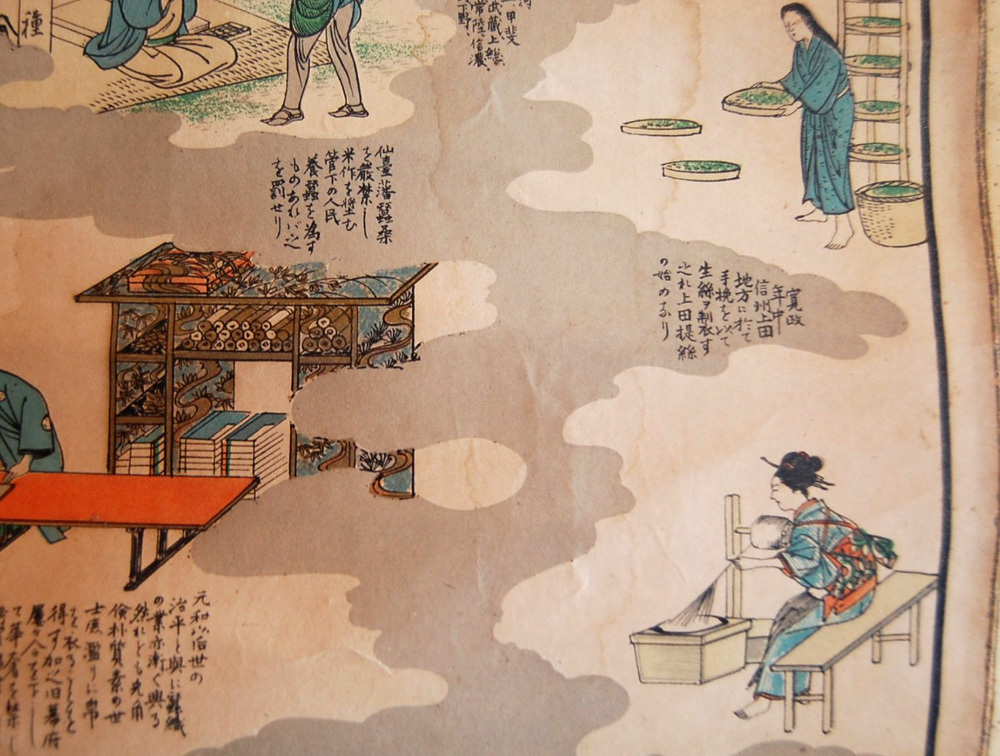 種
甲斐
武蔵上総
常陸信濃
下野
仙臺藩蠶桑
を嚴禁し
米作を奨む
管下の人民
養蠶を為す
ものあれバ之
を罰せり
寛政
年中
信州上田
地方に於て
手挽を以て
生絲ヲ製す
之れ上田提絲
の始めなり
元和以後世の
治平と與に蠶織
の業亦漸く興る
然れども兎角
倹朴質素の世
士庶濫りに帛
を衣ることを
得す加之旧幕府
屢々令を下し
て華奢を禁し